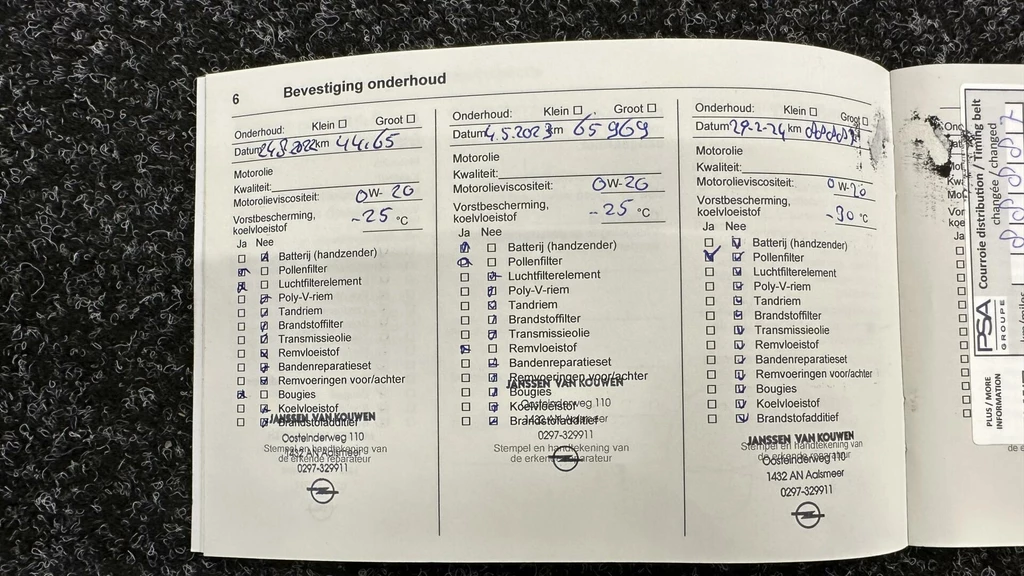 6
Bevestiging onderhoud
Onderhoud: Klein Groot
Datum km
Motorolie
Kwaliteit:
Motorolieviscositeit: 0W-20
Vorstbescherming,
koelvloeistof -25 °C
Ja Nee
Batterij (handzender)
Pollenfilter
Luchtfilterelement
Poly-V-riem
Tandriem
Brandstoffilter
Transmissieolie
Remvloeistof
Bandenreparatieset
Remvoeringen voor/achter
Bougies
Koelvloeistof
Brandstofadditief
JANSSEN VAN KOUWEN
Oosteinderweg 110
Stempel en handtekening van
1432 AN Aalsmeer
de erkende reparateur
0297-329911
Onderhoud: Klein Groot
Datum 4.5.2023 km 65969
Motorolie
Kwaliteit:
Motorolieviscositeit: 0W-20
Vorstbescherming,
koelvloeistof -25 °C
Ja Nee
Batterij (handzender)
Pollenfilter
Luchtfilterelement
Poly-V-riem
Tandriem
Brandstoffilter
Transmissieolie
Remvloeistof
Bandenreparatieset
Remvoeringen voor/achter
JANSSEN VAN KOUWEN
Bougies
Oosteinderweg 110
Koelvloeistof
1432 AN Aalsmeer
Brandstofadditief
0297-329911
Stempel en handtekening van
de erkende reparateur
Onderhoud: Klein Groot
Datum 29-2-24 km
Motorolie
Kwaliteit:
Motorolieviscositeit: 0W-20
Vorstbescherming,
koelvloeistof -30 °C
Ja Nee
Batterij (handzender)
Pollenfilter
Luchtfilterelement
Poly-V-riem
Tandriem
Brandstoffilter
Transmissieolie
Remvloeistof
Bandenreparatieset
Remvoeringen voor/achter
Bougies
Koelvloeistof
Brandstofadditief
JANSSEN VAN KOUWEN
Stempel en handtekening van
de erkende reparateur
Oosteinderweg 110
1432 AN Aalsmeer
0297-329911
Courroie distribution / Timing belt
changée / changed
PSA
GROUPE
PLUS / MORE
INFORMATION